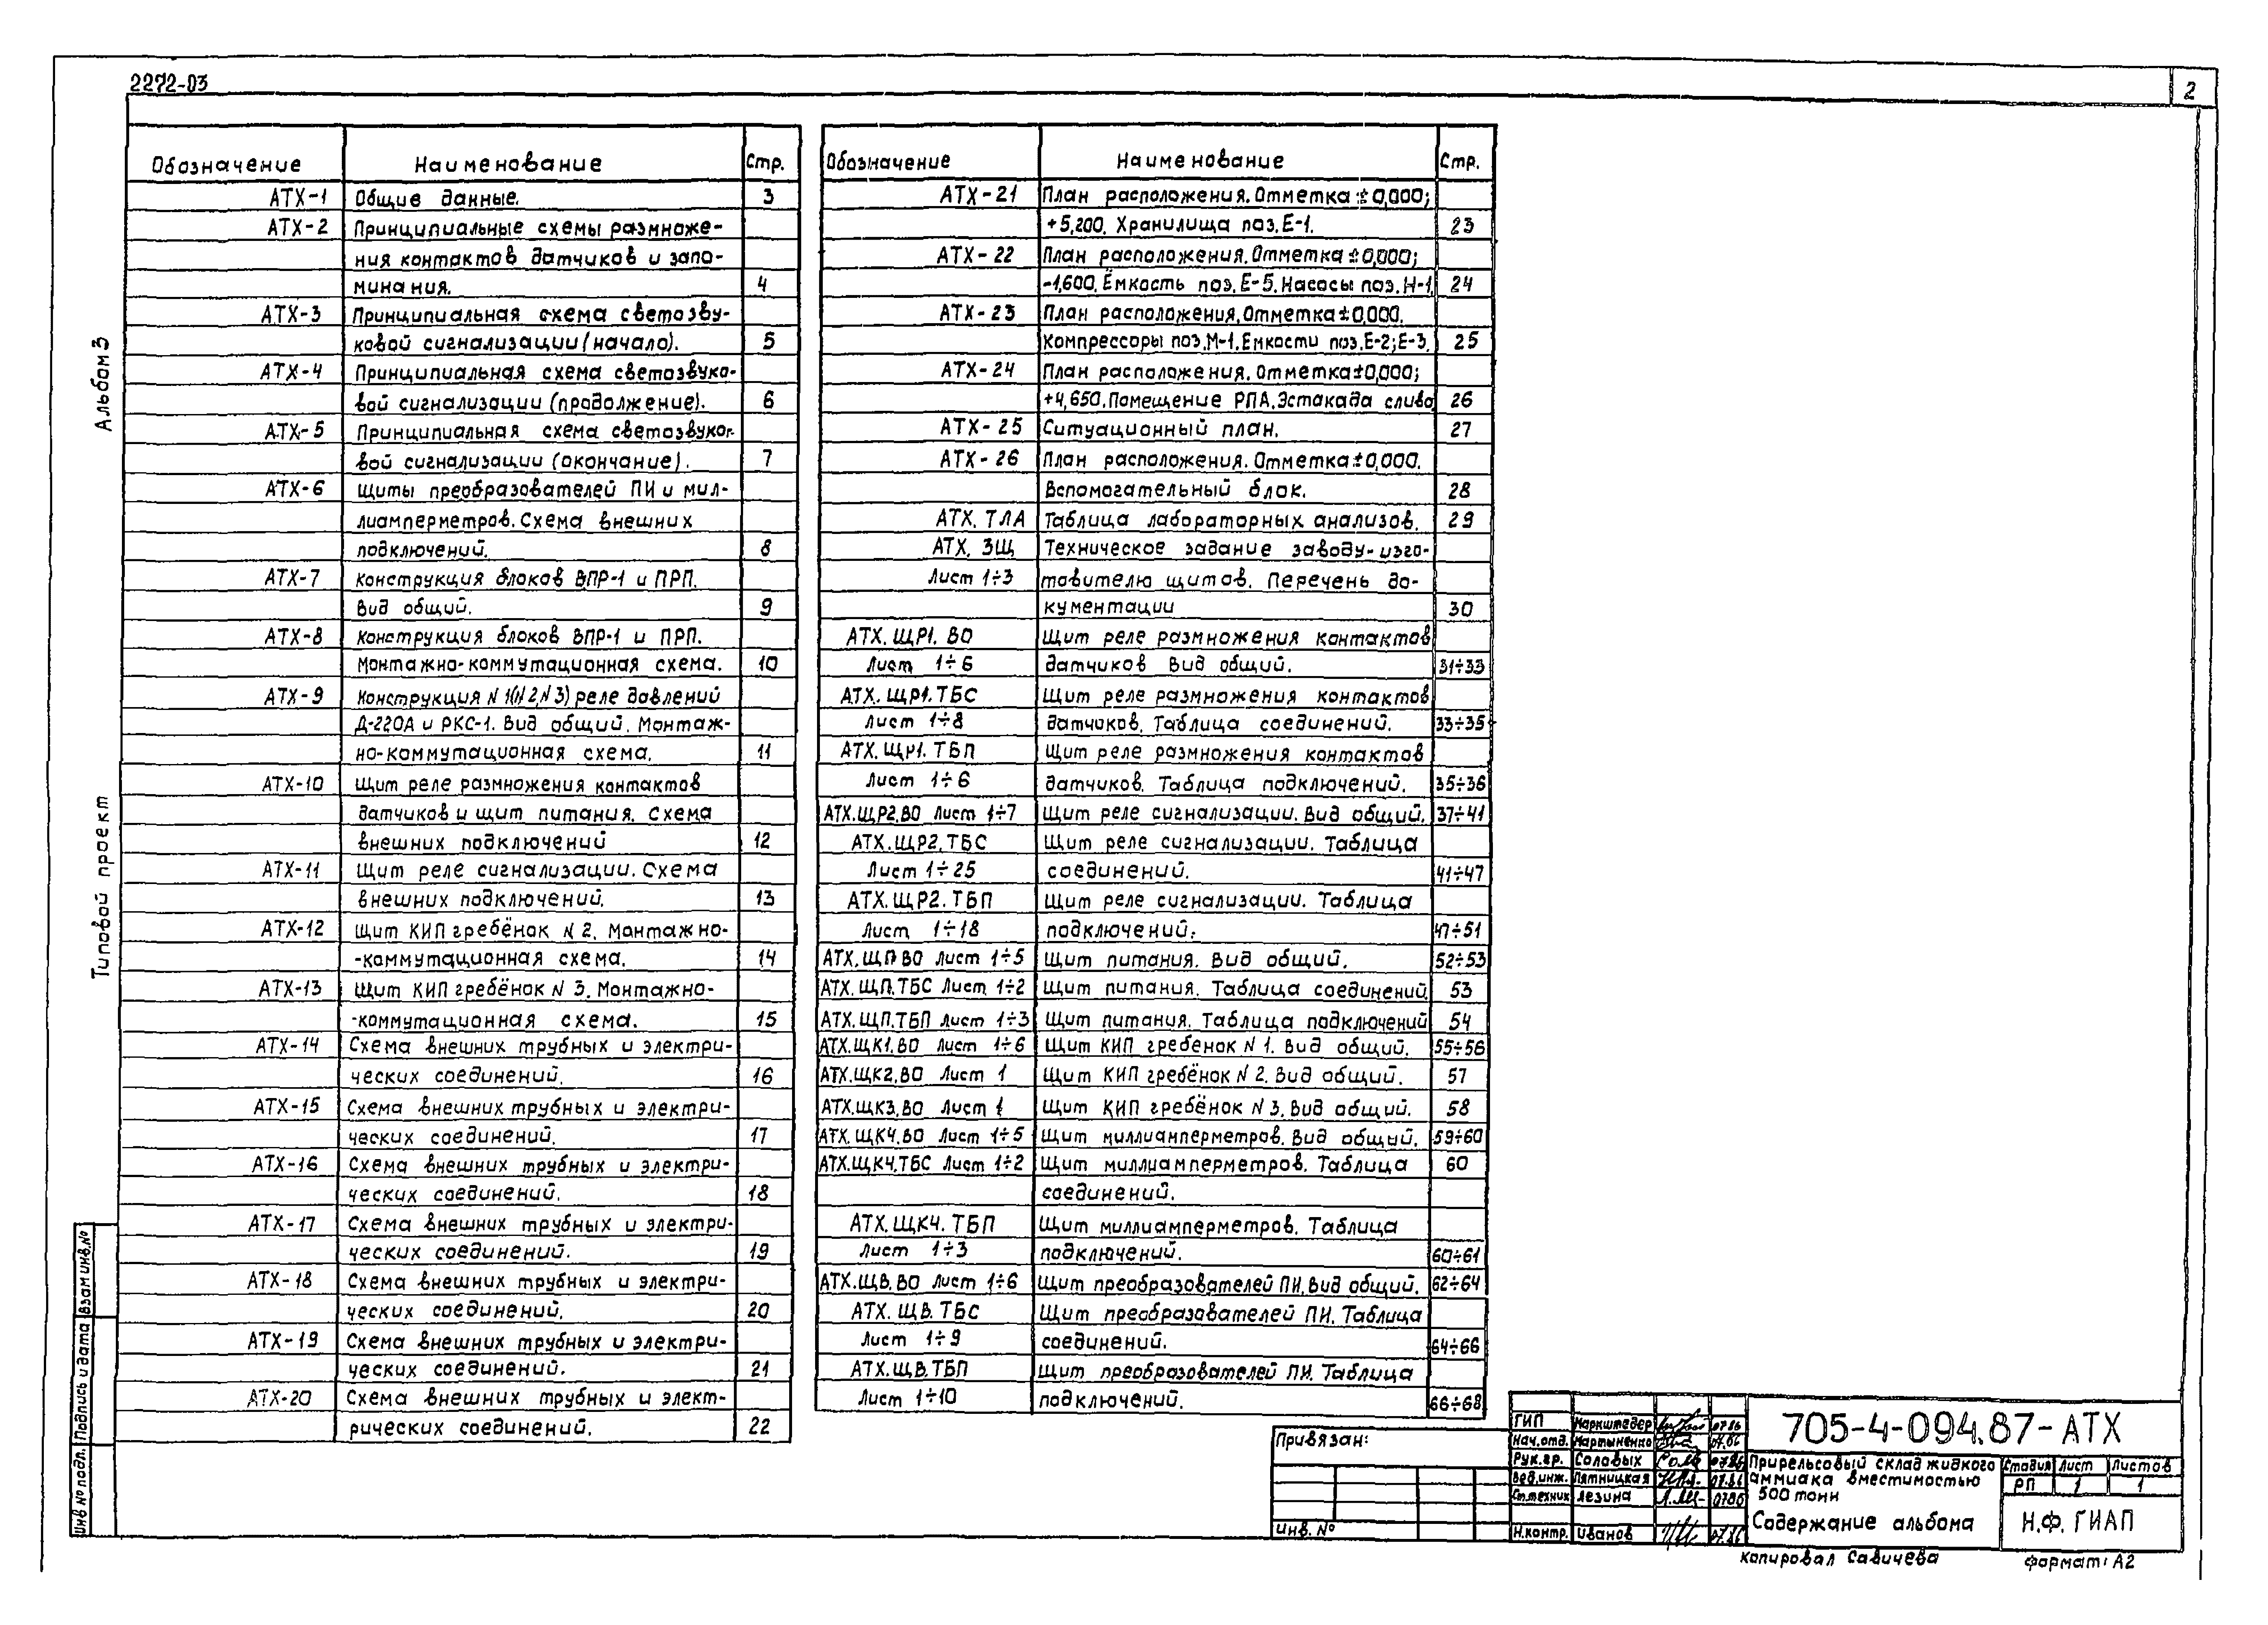 2272-03
2
Альбом 3
Типовой проект
Обозначение Наименование Стр.
АТХ-1 Общие данные. 3
АТХ-2 Принципиальные схемы размноже-
ния контактов датчиков и запо-
минания. 4
АТХ-3 Принципиальная схема светозву-
ковой сигнализации (начало). 5
АТХ-4 Принципиальная схема светозвуко-
вой сигнализации (продолжение). 6
АТХ-5 Принципиальная схема светозвуко-
вой сигнализации (окончание). 7
АТХ-6 Щиты преобразователей ПИ и мил-
лиамперметров. Схема внешних
подключений. 8
АТХ-7 Конструкция блоков ВПР-1 и ПРП.
Вид общий. 9
АТХ-8 Конструкция блоков ВПР-1 и ПРП.
Монтажно-коммутационная схема. 10
АТХ-9 Конструкция N 1(N2,N3) реле давлений
Д-220А и РКС-1. Вид общий. Монтаж-
но-коммутационная схема. 11
АТХ-10 Щит реле размножения контактов
датчиков и щит питания. Схема
внешних подключений 12
АТХ-11 Щит реле сигнализации. Схема
внешних подключений. 13
АТХ-12 Щит КИП гребёнок N 2. Монтажно-
-коммутационная схема. 14
АТХ-13 Щит КИП гребёнок N 3. Монтажно-
-коммутационная схема. 15
АТХ-14 Схема внешних трубных и электри-
ческих соединений. 16
АТХ-15 Схема внешних трубных и электри-
ческих соединений. 17
АТХ-16 Схема внешних трубных и электри-
ческих соединений. 18
АТХ-17 Схема внешних трубных и электри-
ческих соединений. 19
АТХ-18 Схема внешних трубных и электри-
ческих соединений. 20
АТХ-19 Схема внешних трубных и электри-
ческих соединений. 21
АТХ-20 Схема внешних трубных и элект-
рических соединений. 22
Обозначение Наименование Стр.
АТХ-21 План расположения. Отметка ±0,000;
+5,200. Хранилища поз. Е-1. 23
АТХ-22 План расположения. Отметка ±0,000;
-1,600. Ёмкость поз. Е-5. Насосы поз. Н-1. 24
АТХ-23 План расположения. Отметка ±0,000.
Компрессоры поз. М-1. Емкости поз. Е-2; Е-3. 25
АТХ-24 План расположения. Отметка ±0,000;
+4,650. Помещение РПА. Эстакада слива 26
АТХ-25 Ситуационный план. 27
АТХ-26 План расположения. Отметка ±0,000.
Вспомогательный блок. 28
АТХ. ТЛА Таблица лабораторных анализов. 29
АТХ. ЗЩ Техническое задание заводу-изго-
Лист 1÷3 товителю щитов. Перечень до-
кументации 30
АТХ. ЩР1. ВО Щит реле размножения контактов
Лист 1÷6 датчиков Вид общий. 31÷33
АТХ. ЩР1. ТБС Щит реле размножения контактов
Лист 1÷8 датчиков. Таблица соединений. 33÷35
АТХ. ЩР1. ТБП Щит реле размножения контактов
Лист 1÷6 датчиков. Таблица подключений. 35÷36
АТХ.ЩР2.ВО Лист 1÷7 Щит реле сигнализации. Вид общий. 37÷41
АТХ. ЩР2. ТБС Щит реле сигнализации. Таблица
Лист 1÷25 соединений. 41÷47
АТХ. ЩР2. ТБП Щит реле сигнализации. Таблица
Лист 1÷18 подключений. 47÷51
АТХ.ЩП.ВО Лист 1÷5 Щит питания. Вид общий. 52÷53
АТХ. ЩП.ТБС Лист 1÷2 Щит питания. Таблица соединений. 53
АТХ. ЩП.ТБП Лист 1÷3 Щит питания. Таблица подключений 54
АТХ.ЩК1.ВО Лист 1÷6 Щит КИП гребенок N 1. Вид общий. 55÷56
АТХ.ЩК2.ВО Лист 1 Щит КИП гребёнок N 2. Вид общий. 57
АТХ.ЩК3.ВО Лист 1 Щит КИП гребёнок N 3. Вид общий. 58
АТХ.ЩК4.ВО Лист 1÷5 Щит миллиамперметров. Вид общий. 59÷60
АТХ.ЩК4.ТБС Лист 1÷2 Щит миллиамперметров. Таблица 60
соединений.
АТХ. ЩК4. ТБП Щит миллиамперметров. Таблица
Лист 1÷3 подключений. 60÷61
АТХ.ЩВ. ВО Лист 1÷6 Щит преобразователей ПИ. Вид общий. 62÷64
АТХ. ЩВ. ТБС Щит преобразователей ПИ. Таблица
Лист 1÷9 соединений. 64÷66
АТХ. ЩВ. ТБП Щит преобразователей ПИ. Таблица
Лист 1÷10 подключений. 66÷68
Взам инв.№
Подпись и дата
Инв № подл.
Привязан:
Инв. №
ГИП Маркштедер 07.86
Нач.отд. Мартыненко 07.86
Рук.гр. Соловых 07.86
Вед.инж. Пятницкая 07.86
Ст.техник Лезина 07.86
Н.контр. Иванов 07.86
705-4-094.87-АТХ
Прирельсовый склад жидкого
аммиака вместимостью
500 тонн
Стадия Лист Листов
РП 1 1
Содержание альбома
Н.Ф. ГИАП
Копировал Савичева
Формат: А2